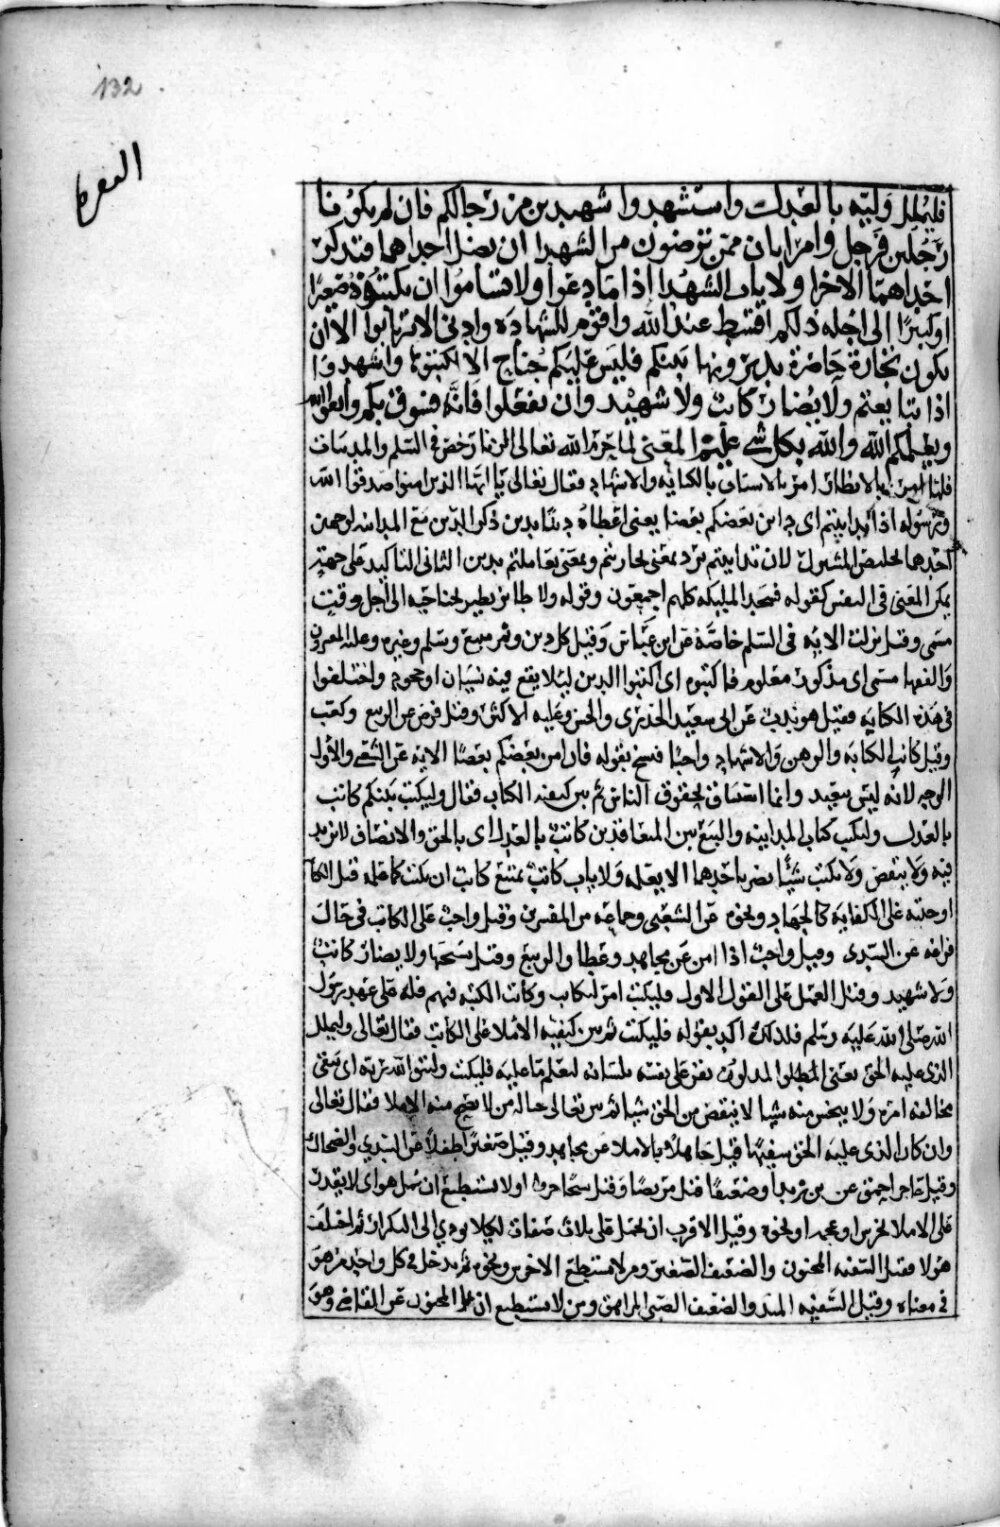 132
البقره
فليملل وليه بالعدل واستشهدوا شهيدين من رجالكم فان لم يكونا
رجلين فرجل وامراتان ممن ترضون من الشهدا ان تضل احداهما فتذكر
احداهما الاخرا ولا ياب الشهدا اذا ما دعوا ولا تساموا ان تكتبوه صغيرا
او كبيرا الى اجله ذلكم اقسط عند الله واقوم للشهادة وادنى الا ترتابوا الا ان
تكون تجارة حاضرة تديرونها بينكم فليس عليكم جناح الا تكتبوها واشهدوا
اذا تبايعتم ولا يضار كاتب ولا شهيد وان تفعلوا فانه فسوق بكم واتقوا الله
ويعلمكم الله والله بكل شي عليم المعنى لما حرم الله تعالى الربا رخص في السلم والمداينات
بالانظار امر بالاستيثاق بالكتابة والاشهاد فقال تعالى يا ايها الذين امنوا صدقوا الله
ورسوله اذا تداينتم اى داين بعضكم بعضا يعنى اعطاه دينا بدين ذكر الدين مع المداينه لوجهين
احدهما تخليص المشترك لان تداينتم ترد بمعنى تجازيتم وبمعنى تعاملتم بدين الثاني التاكيد على جهة
تمكن المعنى في النفس كقوله فسجد المليكه كلهم اجمعون وقوله ولا طاير يطير بجناحيه الى اجل وقت
مسمى وقيل نزلت الايه في السلم خاصة عن ابن عباس وقيل كل دين وثمن مبيع وسلم وغيره وعليه المفسرون
والفقها مسمى اى مذكور معلوم فاكتبوه اى اكتبوا الدين ليلا يقع فيه نسيان او جحود واختلفوا
في هذه الكتابة فقيل هو ندب عن ابى سعيد الخدرى والحسن وعليه الاكثر وقيل فرض عن الربيع وكعب
وقيل كانت الكتابة والرهن والاشهاد واجبا فنسخ بقوله فان امن بعضكم بعضا الاية عن الشعبي والاول
الوجه لانه ليس بعقد وانما استيثاق لحقوق الناس ثم بين كيفية الكتاب فقال وليكتب بينكم كاتب
بالعدل وليكتب كتاب المداينه والبيع بين المتعاقدين كاتب بالعدل اى بالحق والانصاف لا يزيد
فيه ولا ينقص ولا يكتب شيئا يضر باحدهما الا بعلمه ولا ياب كاتب يمتنع كاتب ان يكتب كما علمه قيل
على الكفاية كالجهاد ونحوه عن الشعبى وجماعة من المفسرين وقيل واجب على الكاتب في حال
فراغه عن السدى وقيل واجب اذا امر عن مجاهد وعطا والربيع وقيل نسخها ولا يضار كاتب
ولا شهيد وقيل العمل على القول الاول فليكتب امر للكاتب وكانت الكتبه فيهم قله على عهد رسول
الله صلى الله عليه وسلم فلذلك اكد بقوله فليكتب ثم بين كيفية الاملا على الكاتب فقال تعالى وليملل
الذى عليه الحق يعنى المطلوب المديون يقر على نفسه بلسانه ليعلم ما عليه فليكتب وليتق الله ربه اى يتقى
مخالفة امره ولا يبخس منه شيا لا ينقص من الحق شيا ثم بين تعالى حال من لا يصح منه الاملا فقال تعالى
وان كان الذى عليه الحق سفيها قيل جاهلا بالاملا عن مجاهد وقيل صغيرا طفلا عن السدي والضحاك
وقيل عاجز احمق عن بن زيد او ضعيفا قيل مريضا وقيل شيخا خرفا او لا يستطيع ان يمل هو اى لا يقدر
على الاملا لخرس او عجمه او نحوه وقيل الاقرب ان يحمل على ثلاث صفات لكيلا يودي الى التكرار ثم اختلف
هولا فقيل السفيه المجنون والضعيف الصغير ومن لا يستطيع الاخرس ونحوه ثم يدخل في كل واحد من هو
في معناه وقيل السفيه المبذر والضعيف الصبى المراهق ومن لا يستطيع ان يمل المجنون عن القاضي وهو